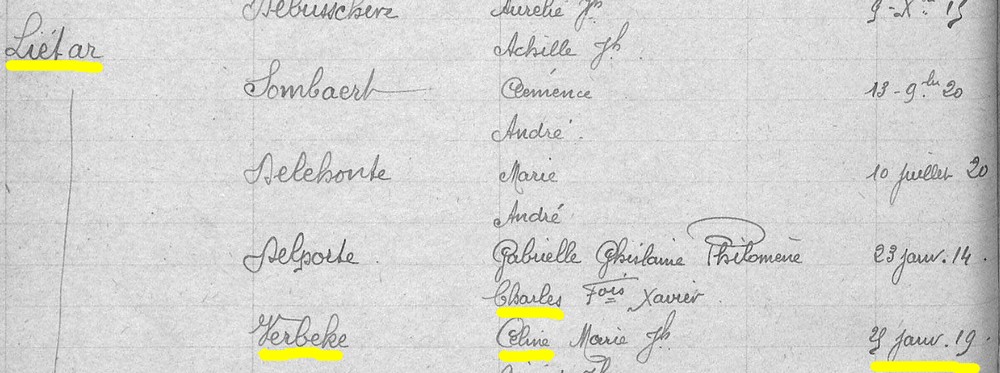 Debusschere Aurélie Jh 9-Xre 19
Liétar Achille Jh.
Sombaert Clémence 13-9bre 20
André.
Delehonte Marie 10 juillet 20
André
Delporte. Gabrielle Ghislaine Philomène 23 janv. 14.
Charles Fois Xavier
Verbeke Céline Marie Jh. janv. 19.